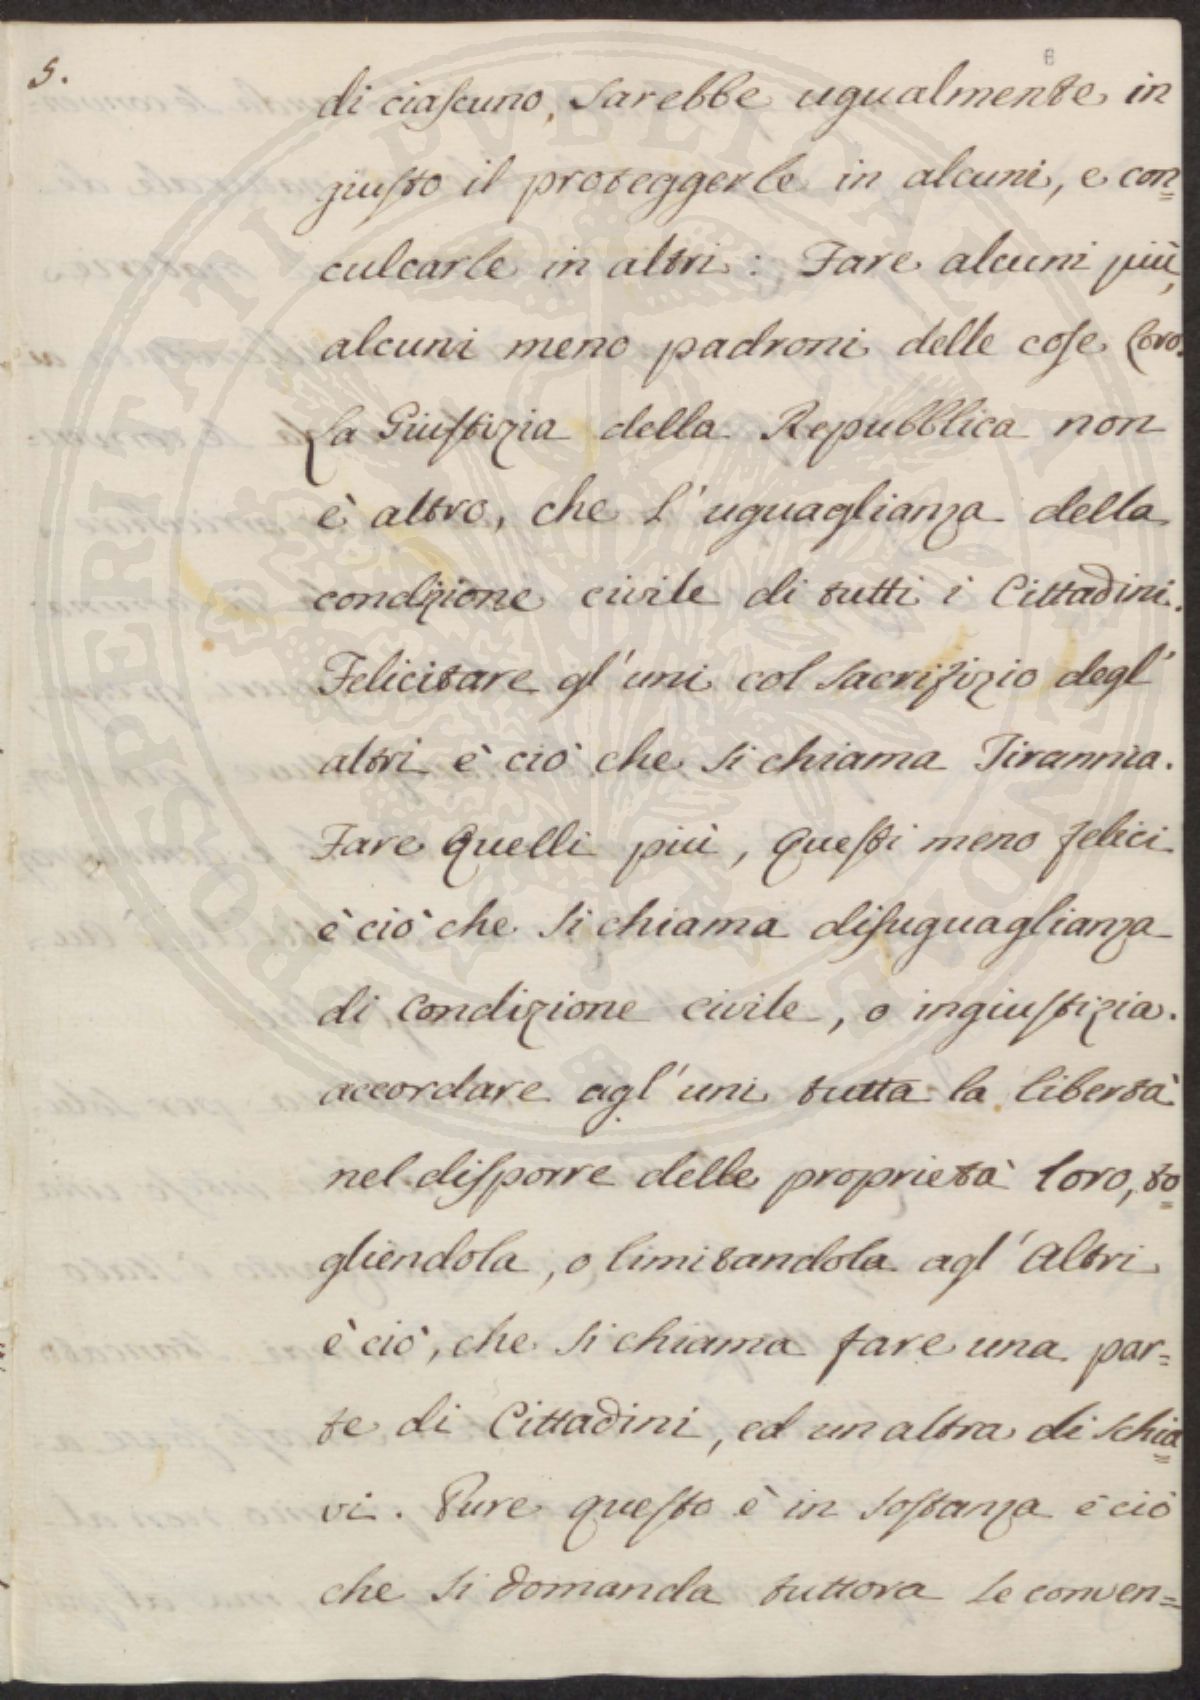 5.
6
di ciascuno, sarebbe ugualmente in
giusto il proteggerle in alcuni, e con=
culcarle in altri: Fare alcuni più,
alcuni meno padroni delle cose loro.
La Giustizia della Repubblica non
è altro, che l'uguaglianza della
condizione civile di tutti i Cittadini.
Felicitare gl'uni col sacrifizio degl'
altri è ciò che si chiama Tirannia.
Fare quelli più, questi meno felici
è ciò che si chiama disuguaglianza
di condizione civile, o ingiustizia.
accordare agl'uni tutta la libertà
nel disporre delle proprietà loro, to=
gliendola, o limitandola agl'altri
è ciò, che si chiama fare una par=
te di Cittadini, ed un altra di schia=
vi. Pure questo è in sostanza è ciò
che si domanda tuttora se conven=
PROSPERITATI PVBLICAE AVGENDAE